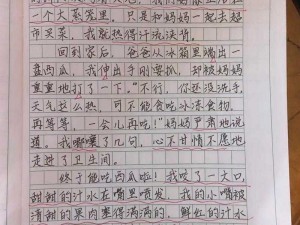 一个大蒸笼里。只是和妈妈一起去超
市买菜，我就热得汗流浃背。
回到家后，爸爸从冰箱里端出一
盘西瓜，我伸出手刚要抓，却被妈妈
重重地打了一下。“不行，你还没洗手。
天气这么热，可不能食吃冰冻食物，
再等等，一会儿再吃！”妈妈严肃地说
道。我嘟囔了几句，心不甘情不愿地
走进了卫生间。
终于能吃西瓜啦！我咬了一大口，
甜甜的汁水在嘴里喷发，我的小嘴被
清甜的果肉塞得满满的，鲜红的汁水